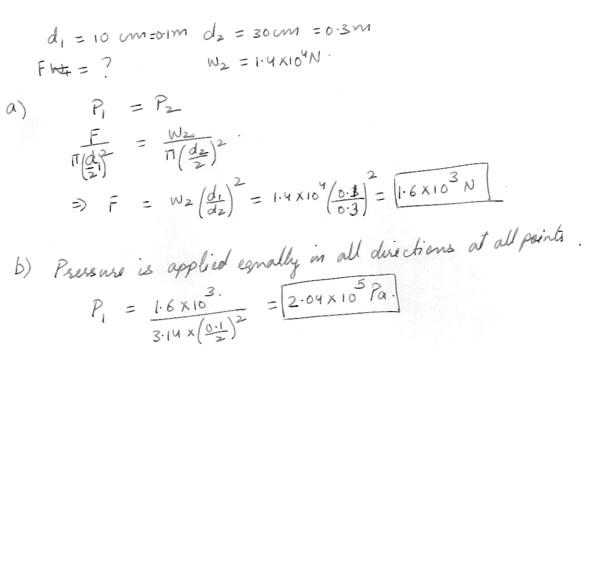 d₁ = 10 cm=0.1m d₂ = 30cm = 0.3m
F = ? W₂ = 1.4x10⁴N.
a) P₁ = P₂
F/(π(d₁/2)²) = W₂/(π(d₂/2)²).
⇒ F = W₂(d₁/d₂)² = 1.4x10⁴(0.1/0.3)² = 1.6x10³ N
b) Pressure is applied equally in all directions at all points.
P₁ = 1.6x10³./(3.14x(0.1/2)²) = 2.04x10⁵ Pa.